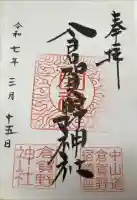 奉拝
倉賀野神社
令和七年三月十五日
中山道
倉賀野宿
倉賀野
神社